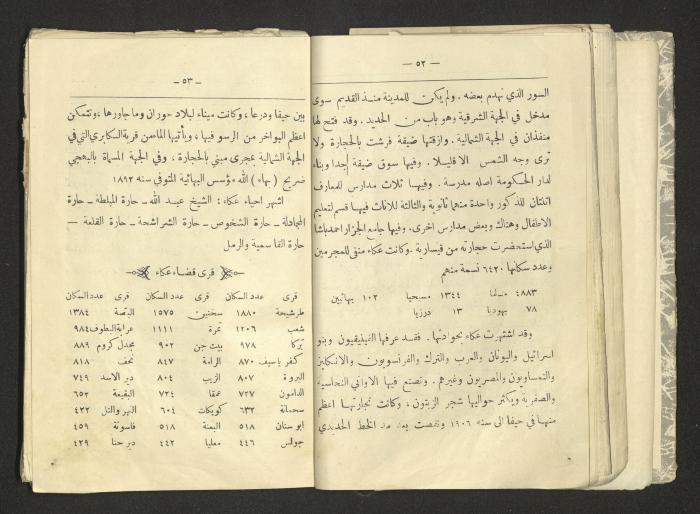 — ٥٢ —
السور الذي تهدم بعضه . ولم يكن للمدينة منذ القديم سوى
مدخل في الجهة الشرقية وهو باب من الحديد . وقد فتح لها
منفذان في الجهة الشمالية . وازقتها ضيقة فرشت بالحجارة ولا
ترى وجه الشمس الا قليلا . وفيها سوق ضيقة جدا وبناء
لدار الحكومة اصله مدرسة . وفيها ثلاث مدارس للمعارف
اثنتان للذكور واحدة منهما ثانوية والثالثة للاناث فيها قسم لتعليم
الاطفال وهناك وبعض مدارس اخرى . وفيها جامع الجزار احمد باشا
الذي استحضرت حجارته من قيسارية . وكانت عكاء منفى للمجرمين
وعدد سكانها ٦٤٢٠ نسمة منهم
٤٨٨٣ مسلما ١٣٤٤ مسيحيا ١٠٢ بهائيين
٧٨ يهوديا ١٣ درزيا
وقد اشتهرت عكاء بحوادثها . فقد عرفها الفينيقيون وبنو
اسرائيل واليونان والعرب والترك والفرنسويون والانكليز
والنمساويون والمصريون وغيرهم . وتصنع فيها الاواني النحاسية
والصفرية ويكثر حواليها شجر الزيتون ، وكانت تجارتها اعظم
منها في حيفا الى سنة ١٩٠٦ ونقصت بعد مد الخط الحديدي
— ٥٣ —
بين حيفا ودرعا ، وكانت ميناء لبلاد حوران وما جاورها ، وتتمكن
اعظم البواخر من الرسو فيها ، ويأتيها الماء من قرية الكابري التي في
الجهة الشمالية بمجرى مبني بالحجارة ، وفي الجهة المسماة بالبهجي
ضريح ( بهاء ) الله مؤسس البهائية المتوفي سنة ١٨٩٢
اشهر احياء عكاء : الشيخ عبد الله – حارة المبلطة – حارة
المجادلة – حارة الشخوص – حارة الشراشحة – حارة القلعة –
حارة الفاسمية والرمل
قرى قضاء عكاء
قرى عدد السكان قرى عدد السكان قرى عدد السكان
طرشيحة ١٨٨٠ سخنين ١٥٧٥ البصة ١٣٨٤
شعب ١٢٠٦ تمرة ١١١١ عرابة البطوف ٩٨٤
تركا ٩٧٨ بيت جن ٩٠٢ مجدل كروم ٨٨٩
كفر ياسيف ٨٧٠ الرامة ٨٤٧ نحف ٨١٨
البروة ٨٠٧ الزيب ٨٠٤ دير الاسد ٧٤٩
الدامون ٧٢٧ عمقا ٧٢٤ البقيعة ٦٥٢
سحماتة ٦٣٢ كويكات ٦٠٤ النهر والتل ٤٢٢
ابو سنان ٥١٨ البعنة ٥١٨ فاسوتة ٤٥٩
جولس ٤٤٦ معليا ٤٤٢ دير حنا ٤٢٩